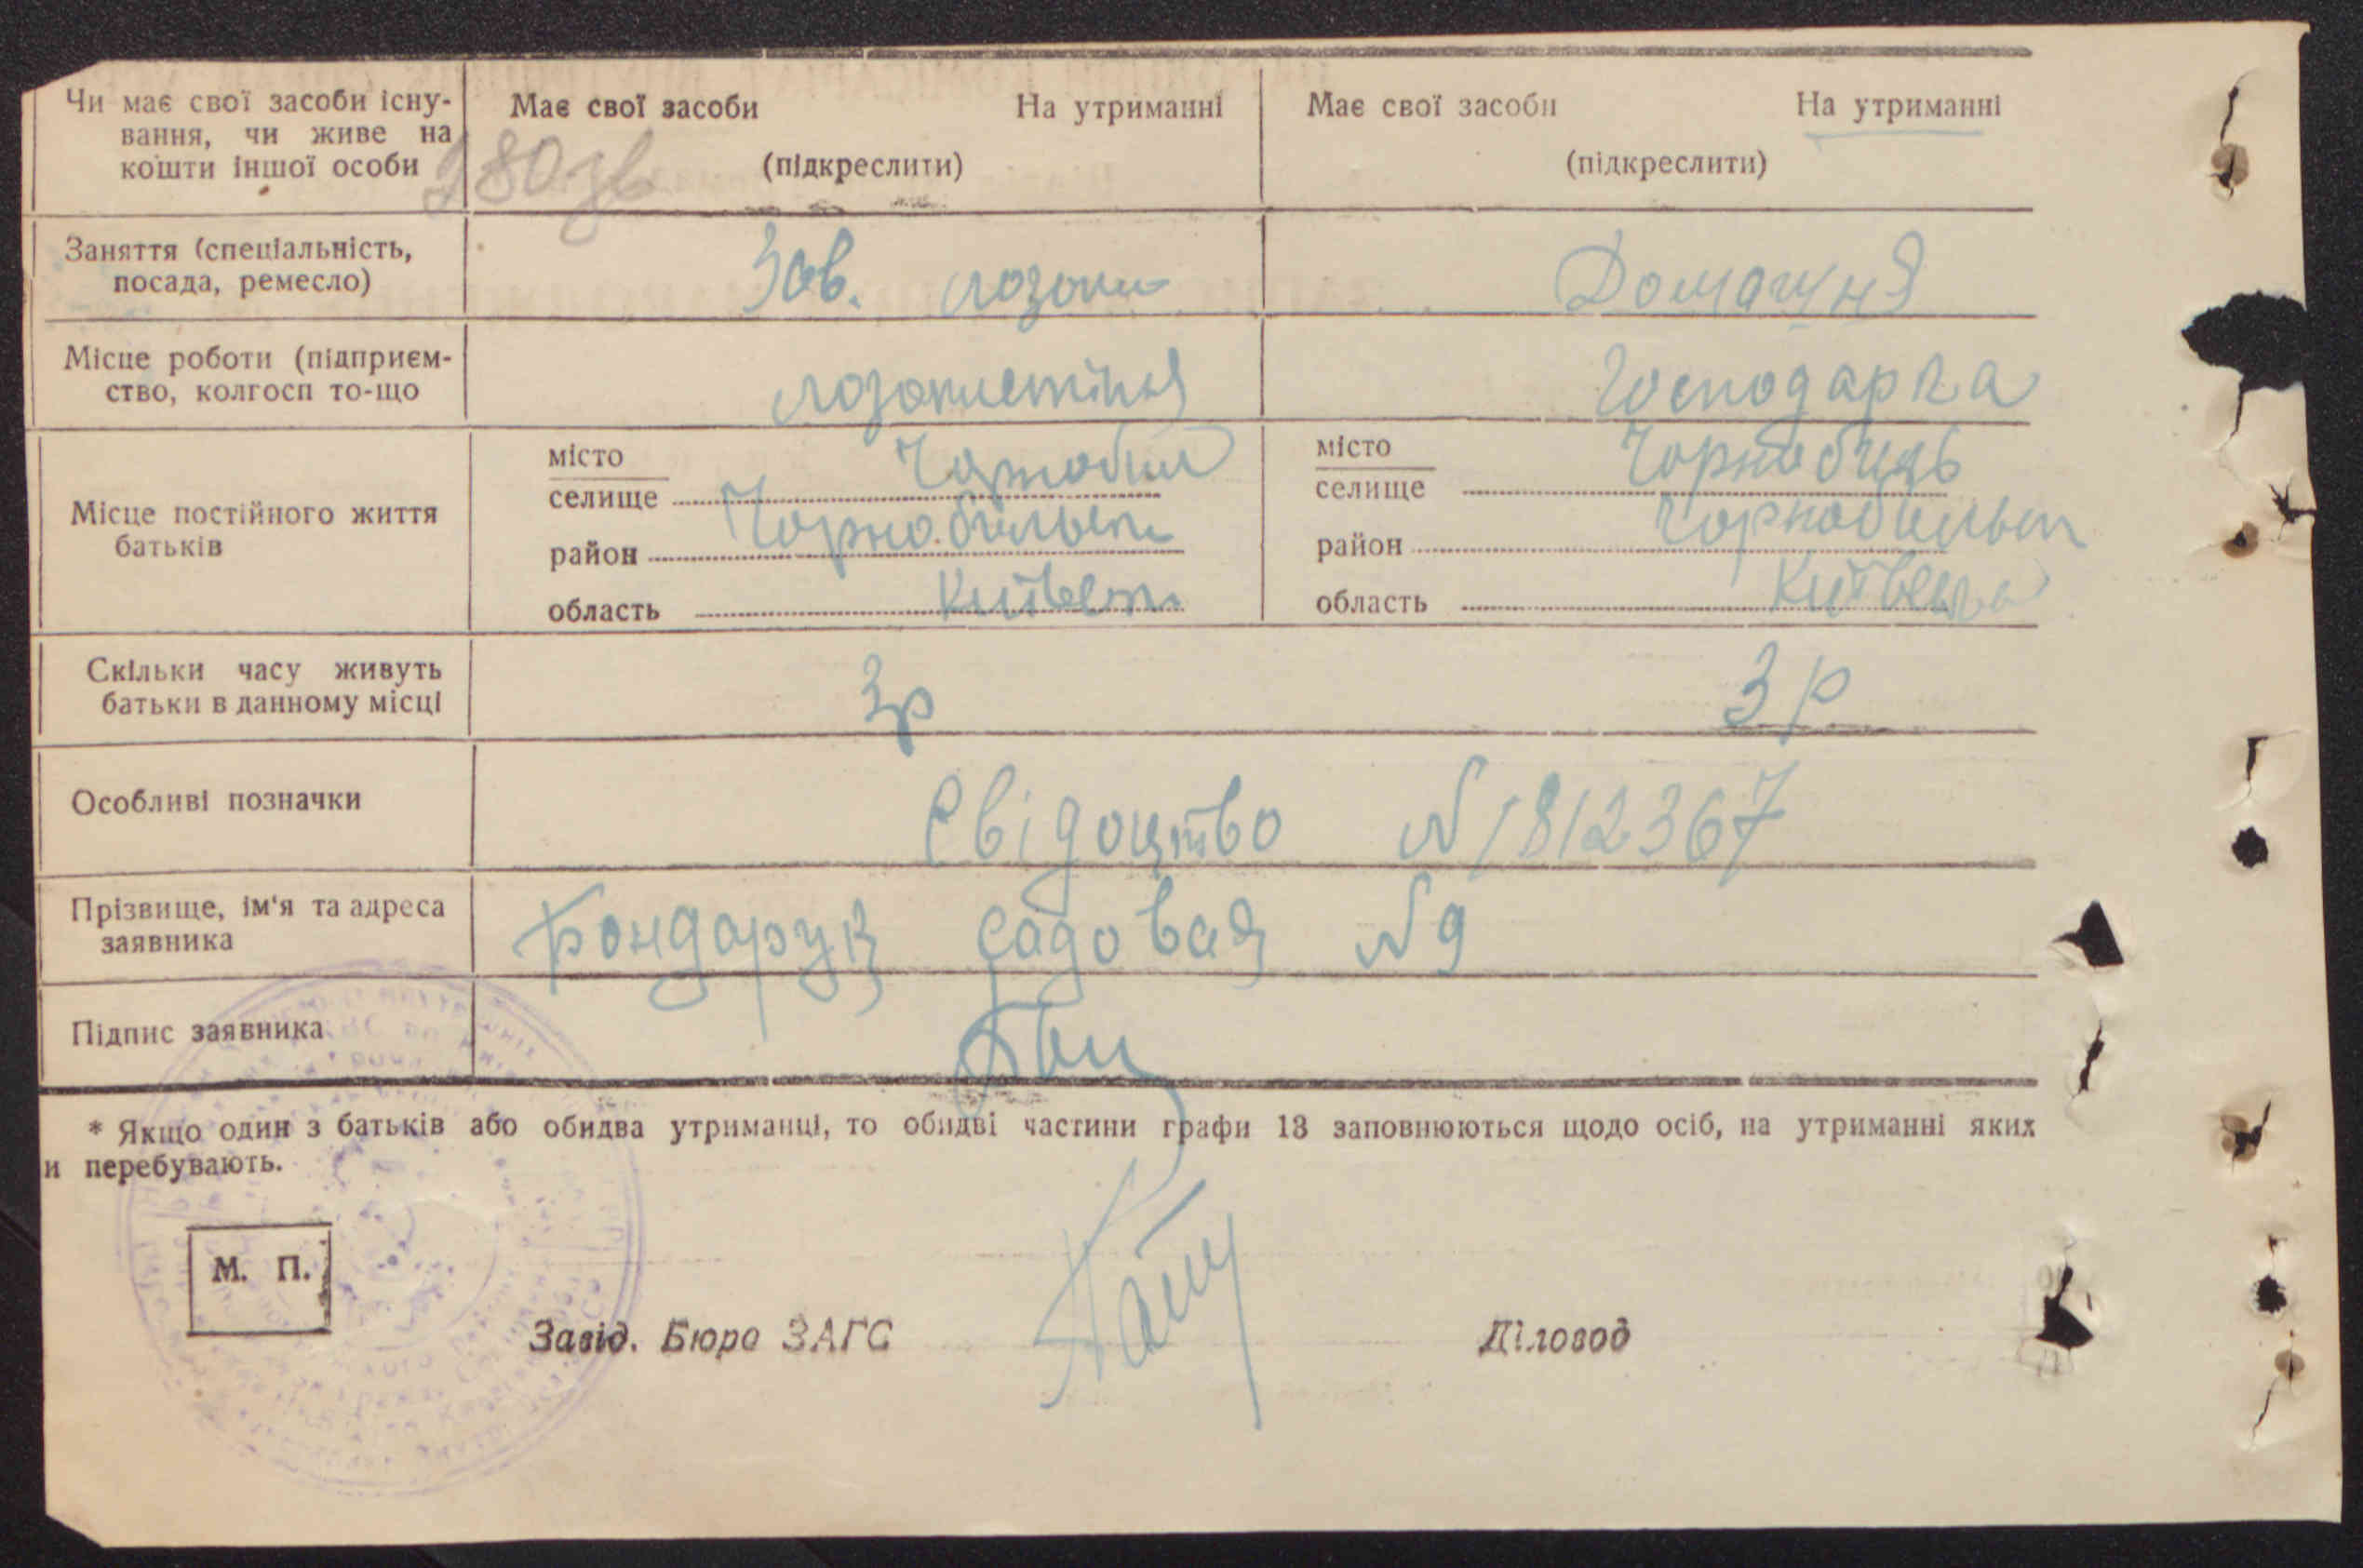 Чи має свої засоби існу-
вання, чи живе на
кошти іншої особи
Має свої засоби На утриманні
(підкреслити)
Має свої засоби На утриманні
(підкреслити)
280
Заняття (спеціальність,
посада, ремесло)
Зав. лозопл
Домашня
Місце роботи (підприєм-
ство, колгосп то-що
лозоплетіння
Господарка
Місце постійного життя
батьків
місто
селище Чорнобил
район Чорнобильськ
область Київськ
місто
селище Чорнобиль
район Чорнобильськ
область Київська
Скільки часу живуть
батьки в данному місці
3р
3р
Особливі позначки
Свідоцтво N 1812367
Прізвище, ім'я та адреса
заявника
Бондарук Садовая N 9
Підпис заявника
* Якщо один з батьків або обидва утриманці, то обидві частини графи 13 заповнюються щодо осіб, на утриманні яких
и перебувають.
М. П.
Завід. Бюро ЗАГС
Діловод